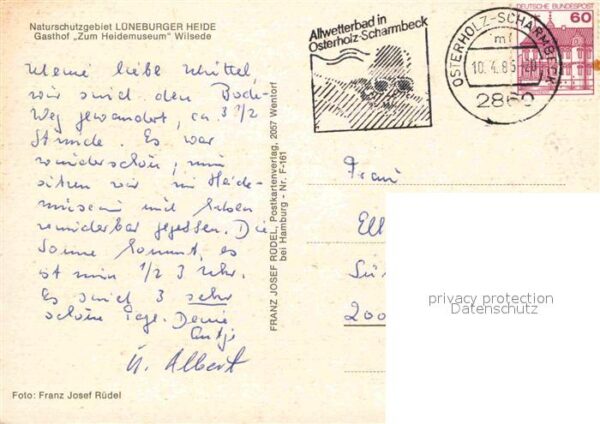 Naturschutzgebiet LÜNEBURGER HEIDE
Gasthof „Zum Heidemuseum" Wilsede
Meine liebe
wir sind den Bock-
Weg gewandert, ca 3 1/2
Stunde. Es war
wunderschön, nun
sitzen wir im Heide-
museum und haben
wunderbar gegessen. Die
Sonne kommt, es
ist nun 1/2 3 Uhr.
Es sind 3 sehr
schöne Tage. Deine
Antje
u. Albert
Foto: Franz Josef Rüdel
FRANZ JOSEF RÜDEL, Postkartenverlag, 2057 Wentorf
bei Hamburg - Nr. F-161
Allwetterbad in
Osterholz-Scharmbeck
OSTERHOLZ-SCHARMBECK
10.4.85
2860
DEUTSCHE BUNDESPOST
60
Frau
200
privacy protection
Datenschutz